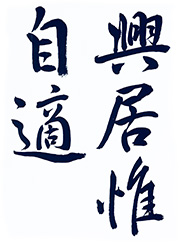 興居惟
自適